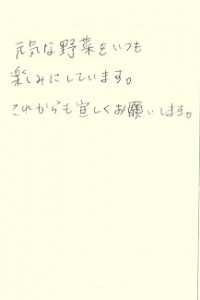 元気な野菜をいつも
楽しみにしています。
これからも宜しくお願いします。